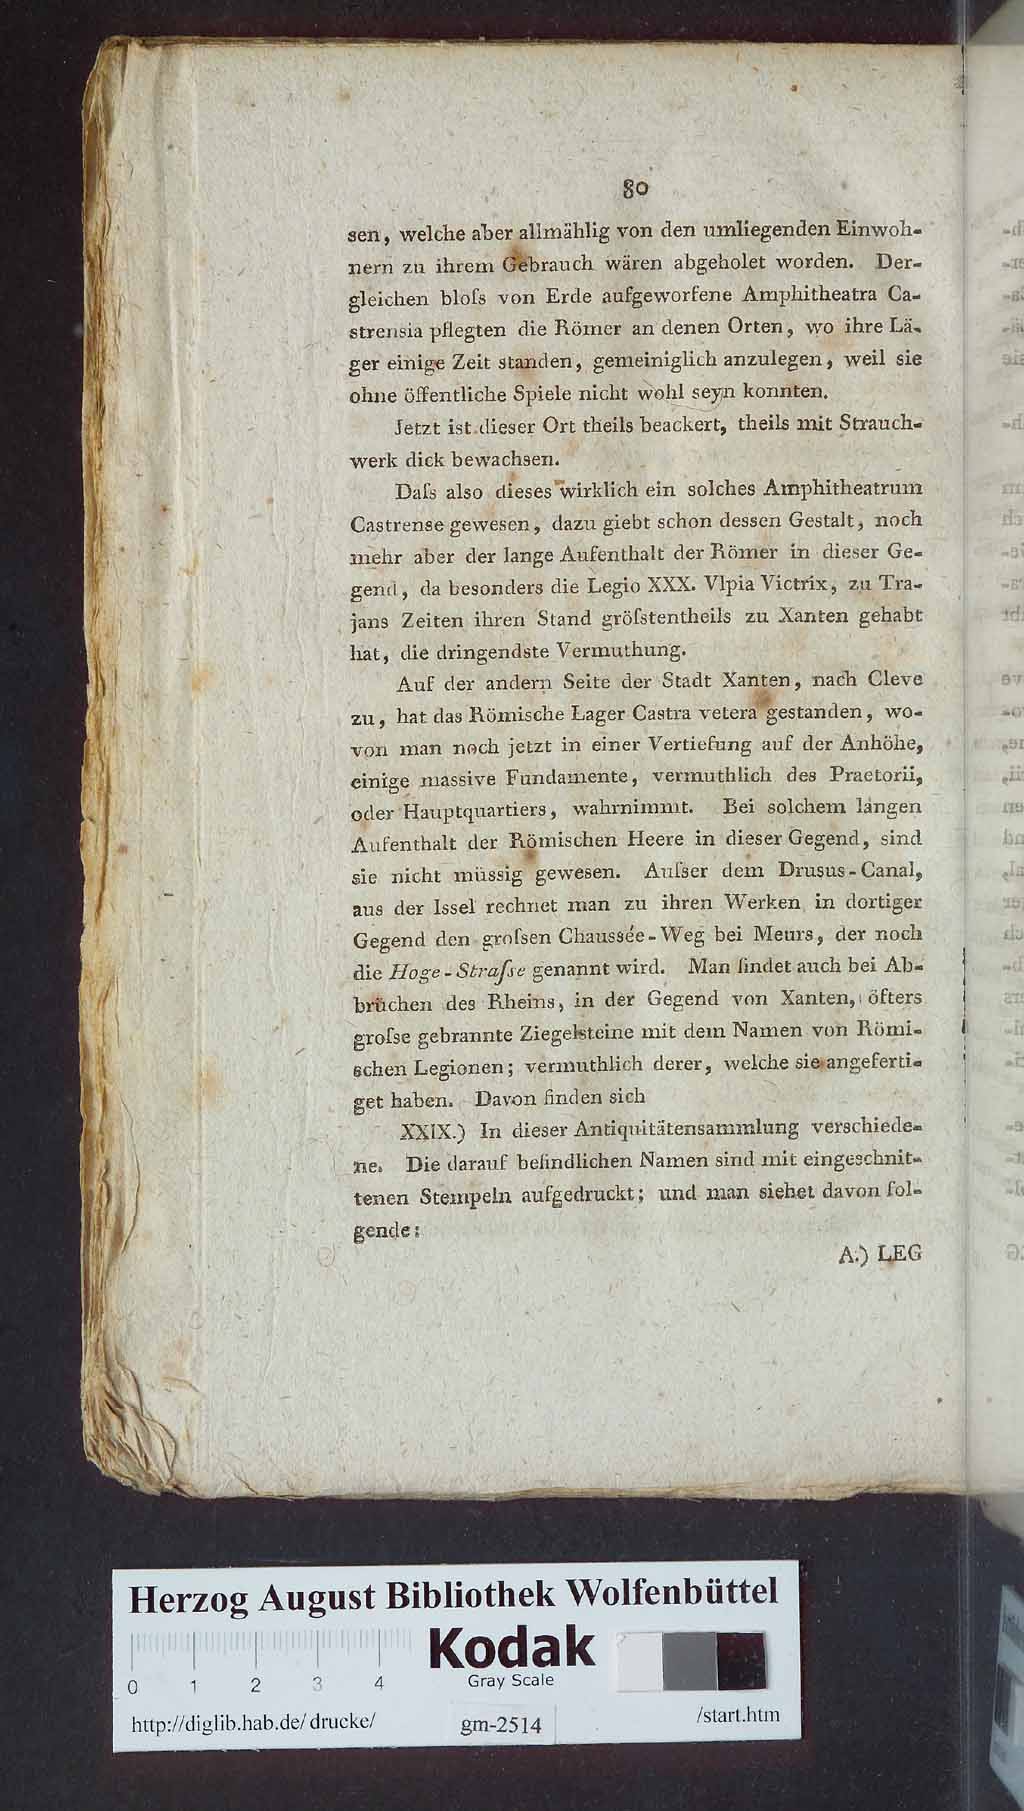 80
sen, welche aber allmählig von den umliegenden Einwoh-
nern zu ihrem Gebrauch wären abgeholet worden. Der-
gleichen bloſs von Erde aufgeworfene Amphitheatra Ca-
strensia pflegten die Römer an denen Orten, wo ihre Lä-
ger einige Zeit standen, gemeiniglich anzulegen, weil sie
ohne öffentliche Spiele nicht wohl seyn konnten.
Jetzt ist dieser Ort theils beackert, theils mit Strauch-
werk dick bewachsen.
Daſs also dieses wirklich ein solches Amphitheatrum
Castrense gewesen, dazu giebt schon dessen Gestalt, noch
mehr aber der lange Aufenthalt der Römer in dieser Ge-
gend, da besonders die Legio XXX. Vlpia Victrix, zu Tra-
jans Zeiten ihren Stand gröſstentheils zu Xanten gehabt
hat, die dringendste Vermuthung.
Auf der andern Seite der Stadt Xanten, nach Cleve
zu, hat das Römische Lager Castra vetera gestanden, wo-
von man noch jetzt in einer Vertiefung auf der Anhöhe,
einige massive Fundamente, vermuthlich des Praetorii,
oder Hauptquartiers, wahrnimmt. Bei solchem langen
Aufenthalt der Römischen Heere in dieser Gegend, sind
sie nicht müssig gewesen. Auſser dem Drusus-Canal,
aus der Issel rechnet man zu ihren Werken in dortiger
Gegend den groſsen Chaussée-Weg bei Meurs, der noch
die Hoge-Straſse genannt wird. Man findet auch bei Ab-
brüchen des Rheins, in der Gegend von Xanten, öfters
groſse gebrannte Ziegelsteine mit dem Namen von Römi-
schen Legionen; vermuthlich derer, welche sie angeferti-
get haben. Davon finden sich
XXIX.) In dieser Antiquitätensammlung verschiede-
ne. Die darauf befindlichen Namen sind mit eingeschnit-
tenen Stempeln aufgedruckt; und man siehet davon fol-
gende:
A.) LEG
Herzog August Bibliothek Wolfenbüttel
Kodak
Gray Scale
0 1 2 3 4
http://diglib.hab.de/drucke/ gm-2514 /start.htm